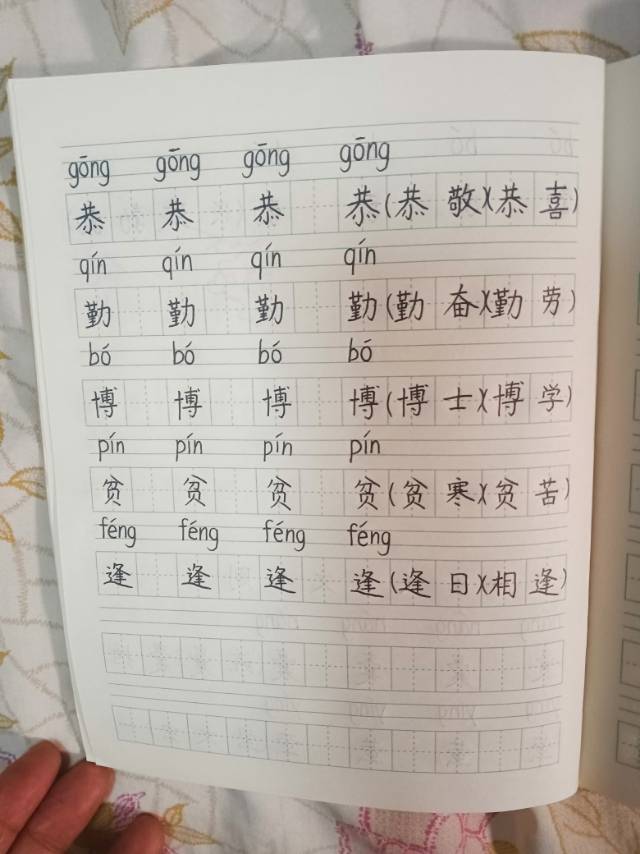 gōng gōng gōng gōng
恭 恭 恭 恭(恭 敬)(恭 喜)
qín qín qín qín
勤 勤 勤 勤(勤 奋)(勤 劳)
bó bó bó bó
博 博 博 博(博 士)(博 学)
pín pín pín pín
贫 贫 贫 贫(贫 寒)(贫 苦)
féng féng féng féng
逢 逢 逢 逢(逢 日)(相 逢)